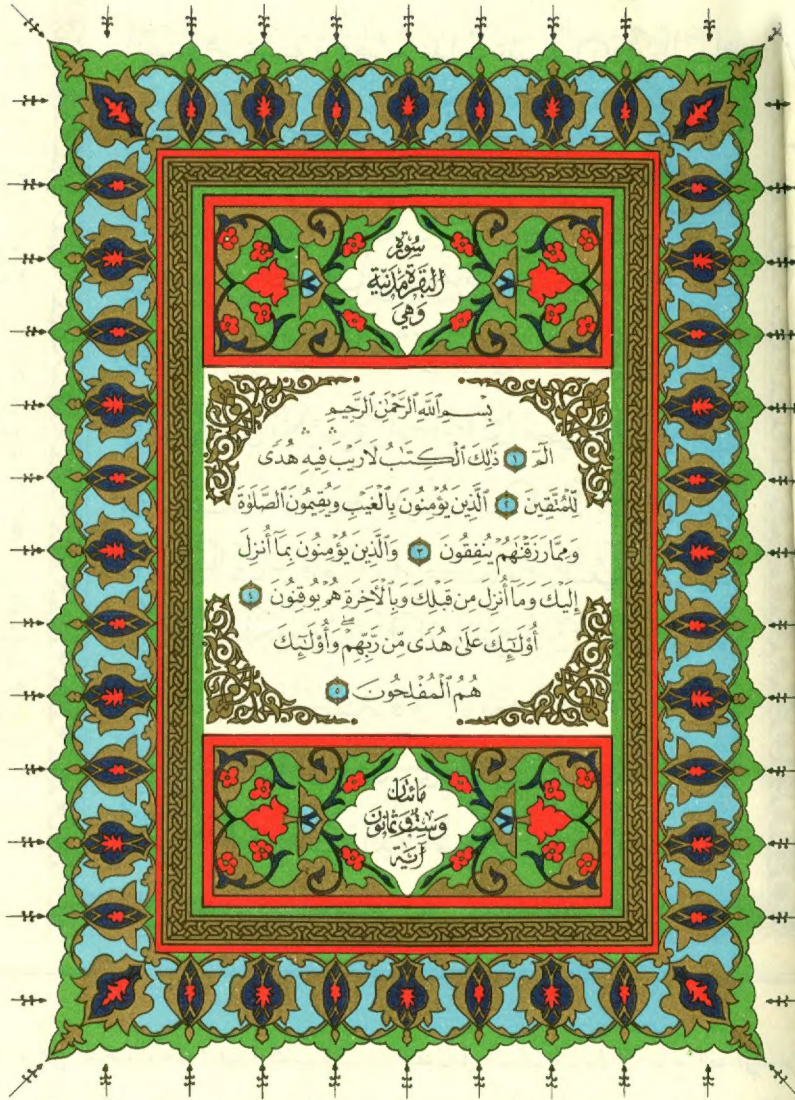 سُورَةُ
البَقَرَةِ مَدَنِيَّة
وَهِيَ
بِسْمِ ٱللَّهِ ٱلرَّحْمَٰنِ ٱلرَّحِيمِ
الٓمٓ ١ ذَٰلِكَ ٱلْكِتَٰبُ لَا رَيْبَ ۛ فِيهِ ۛ هُدًى
لِّلْمُتَّقِينَ ٢ ٱلَّذِينَ يُؤْمِنُونَ بِٱلْغَيْبِ وَيُقِيمُونَ ٱلصَّلَوٰةَ
وَمِمَّا رَزَقْنَٰهُمْ يُنفِقُونَ ٣ وَٱلَّذِينَ يُؤْمِنُونَ بِمَآ أُنزِلَ
إِلَيْكَ وَمَآ أُنزِلَ مِن قَبْلِكَ وَبِٱلْءَاخِرَةِ هُمْ يُوقِنُونَ ٤
أُو۟لَٰٓئِكَ عَلَىٰ هُدًى مِّن رَّبِّهِمْ ۖ وَأُو۟لَٰٓئِكَ
هُمُ ٱلْمُفْلِحُونَ ٥
مائتان
وَسِتّ وَثمانون
آية